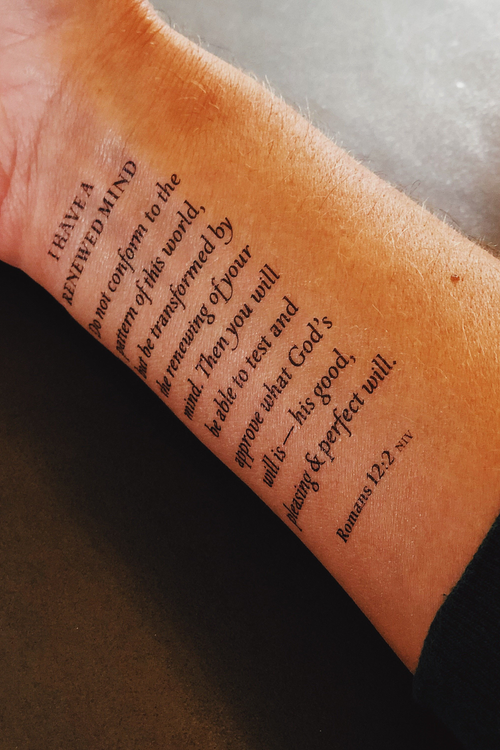 I HAVE A
RENEWED MIND
Do not conform to the
pattern of this world,
but be transformed by
the renewing of your
mind. Then you will
be able to test and
approve what God's
will is—his good,
pleasing & perfect will.
Romans 12:2 NIV